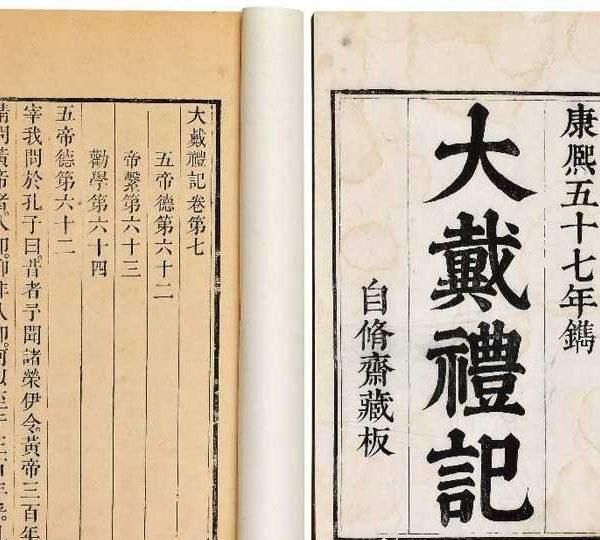 康熙五十七年鐫
大戴禮記
自脩齋藏板
大戴禮記卷第七
五帝德第六十二
帝繫第六十三
勸學第六十四
五帝德第六十二
宰我問於孔子曰昔者予聞諸榮伊令黃帝三百年
請問黃帝者人耶抑非人耶何以至于三百年乎